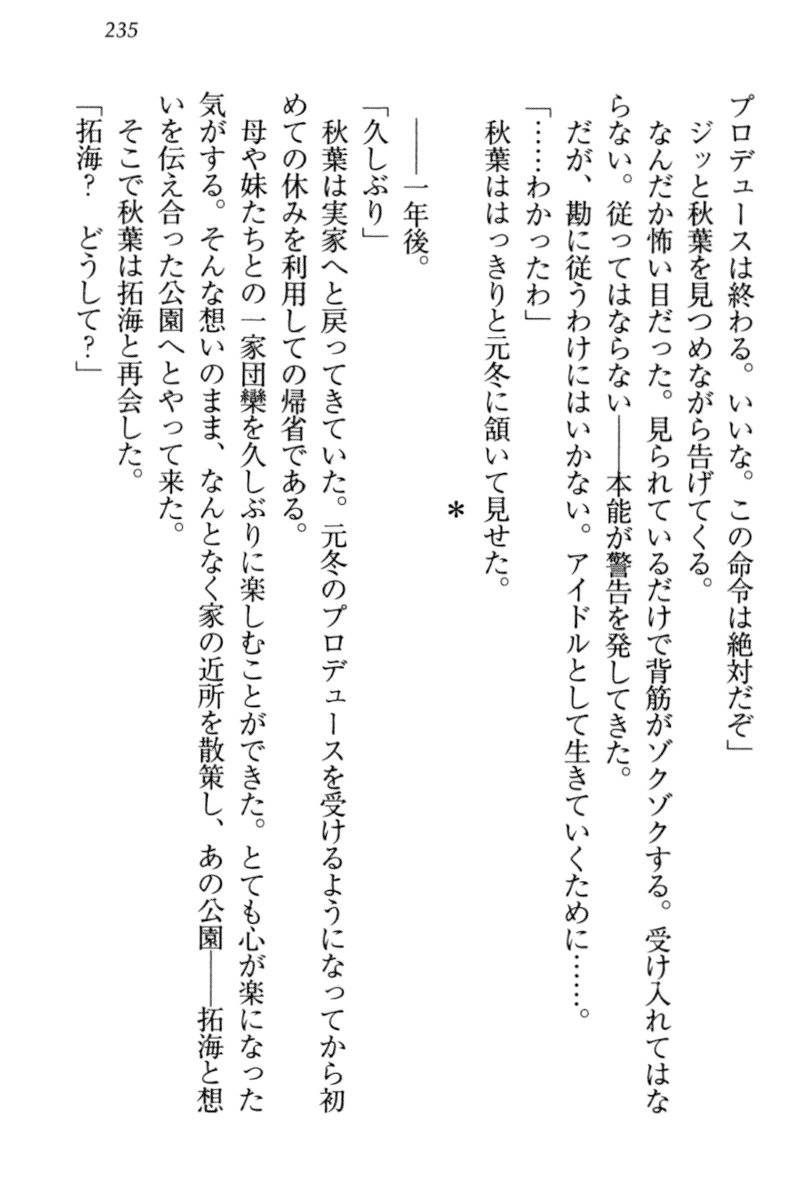 235
プロデュースは終わる。いいな。この命令は絶対だぞ」
ジッと秋葉を見つめながら告げてくる。
なんだか怖い目だった。見られているだけで背筋がゾクゾクする。受け入れてはな
らない。従ってはならない――本能が警告を発してきた。
だが、勘に従うわけにはいかない。アイドルとして生きていくために……。
「……わかったわ」
秋葉ははっきりと元冬に頷いて見せた。
＊
――一年後。
「久しぶり」
秋葉は実家へと戻ってきていた。元冬のプロデュースを受けるようになってから初
めての休みを利用しての帰省である。
母や妹たちとの一家団欒を久しぶりに楽しむことができた。とても心が楽になった
気がする。そんな想いのまま、なんとなく家の近所を散策し、あの公園――拓海と想
いを伝え合った公園へとやって来た。
そこで秋葉は拓海と再会した。
「拓海？　どうして？」